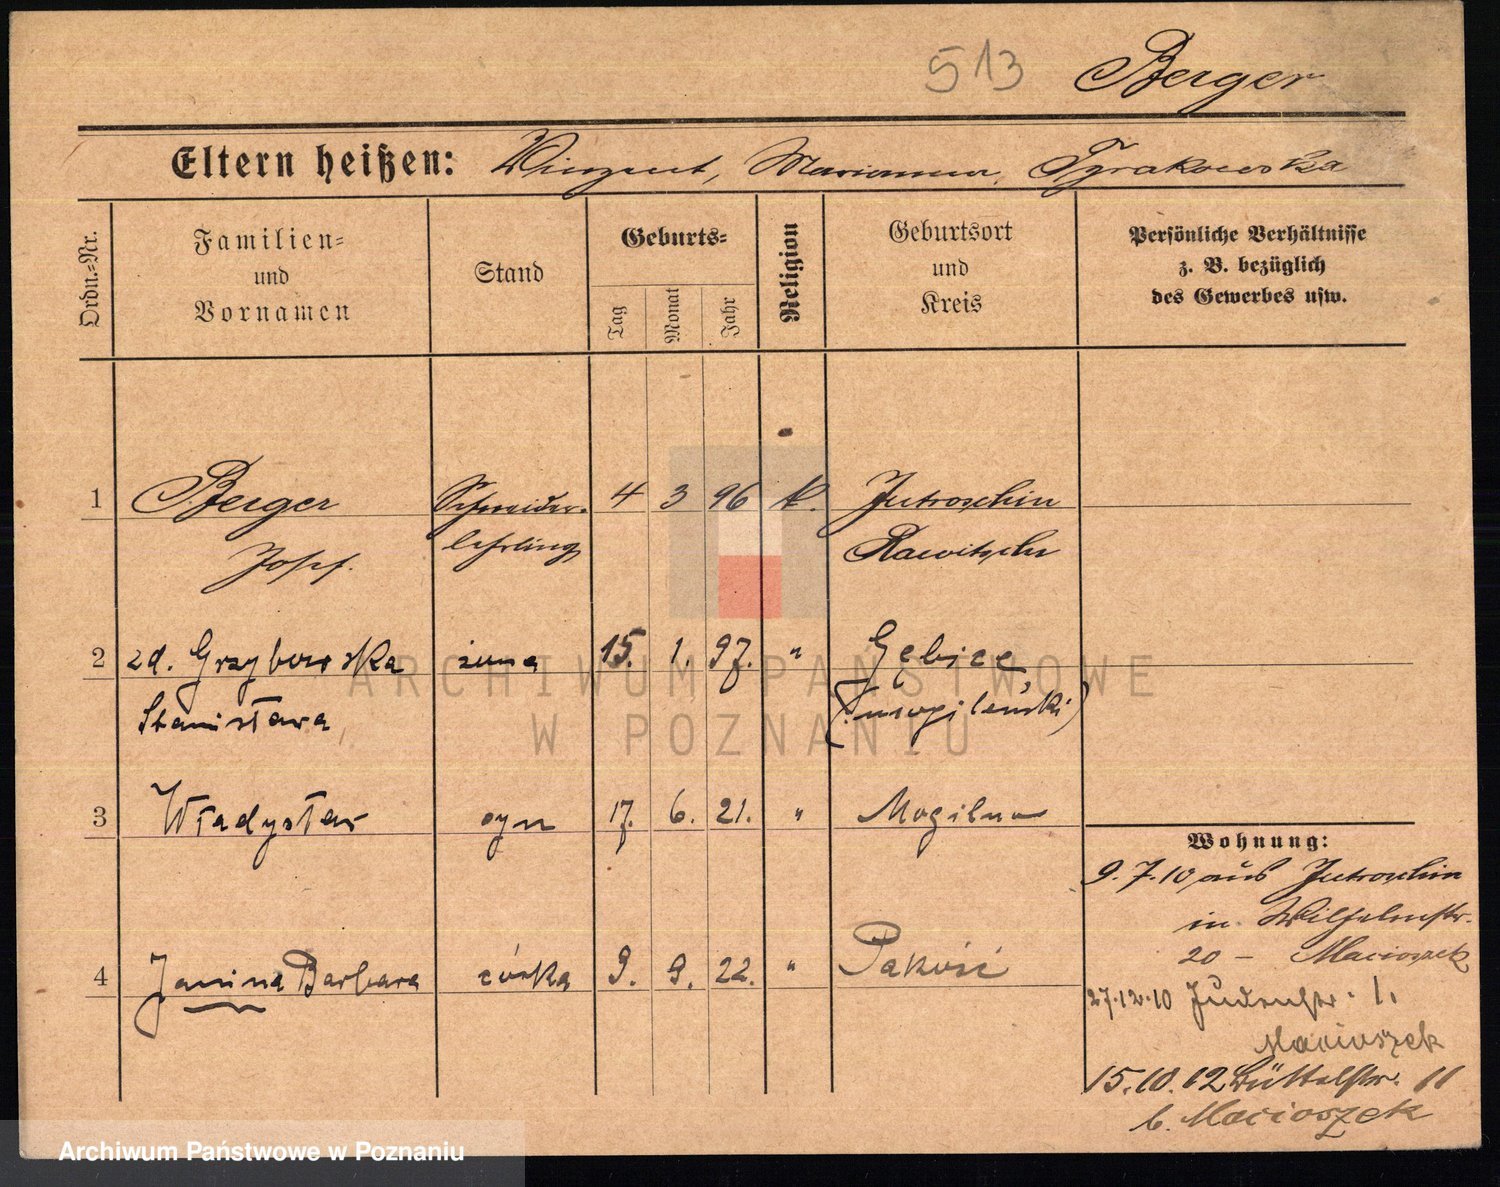 513 Berger
Eltern heißen: Vinzent, Marianna, Tyrakowska
Ordn.=Nr.
Familien=
und
Vornamen
Stand
Geburts=
Tag
Monat
Jahr
Religion
Geburtsort
und
Kreis
Persönliche Verhältnisse
z. B. bezüglich
des Gewerbes usw.
1 Berger Schneider- 4 3 96 k. Jutroschin
Josef. lehrling Rawitsch
2 zd. Grzybowska żona 15. 1. 97. " Gębice,
Stanisława (mogileński)
3 Władysław syn 17. 6. 21. " Mogilno
4 Janina Barbara córka 9. 9. 22. " Pakość
Wohnung:
9.7.10 aus Jutroschin
in Wilhelmstr.
20 – Macioszek
27.12.10 Judenstr. 1.
Macioszek
15.10.12 Büttelstr. 11
b. Macioszek
ARCHIWUM PAŃSTWOWE
W POZNANIU
Archiwum Państwowe w Poznaniu